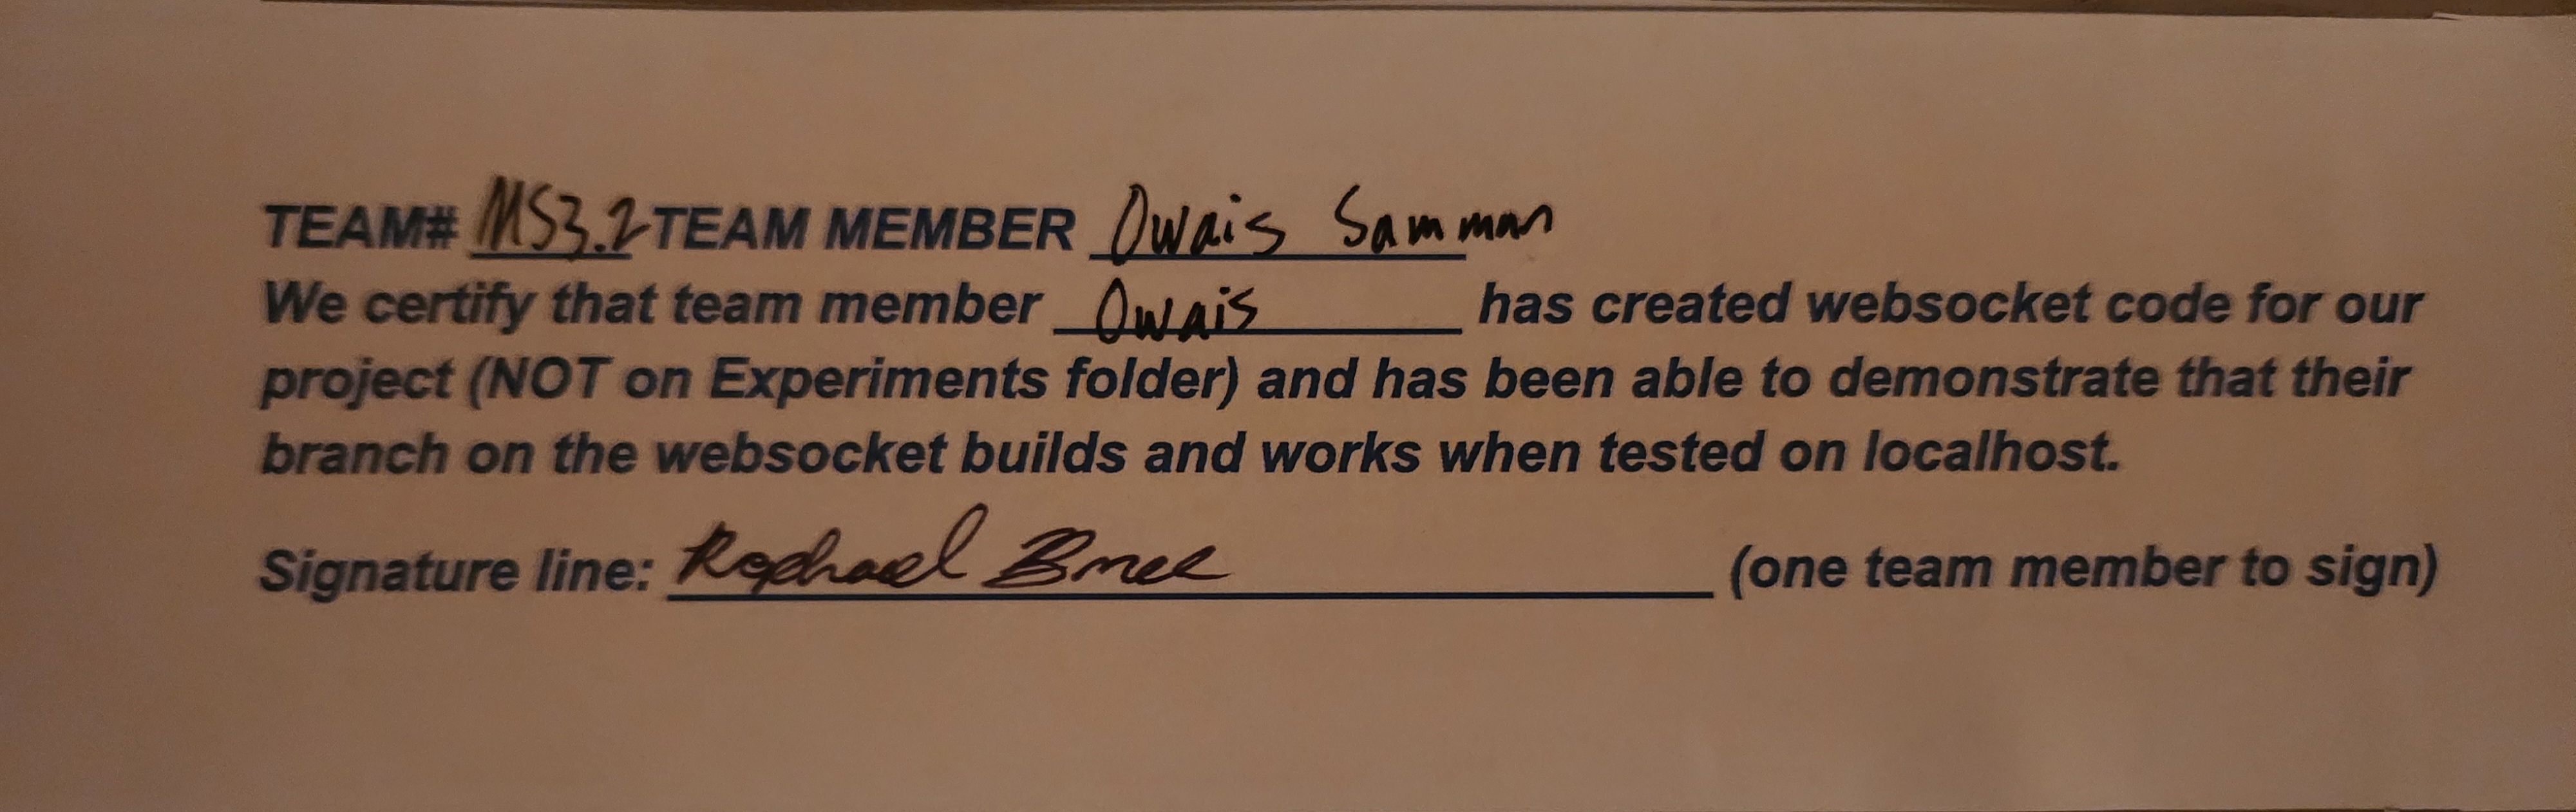 TEAM# MS3.2 TEAM MEMBER Owais Samman
We certify that team member Owais has created websocket code for our
project (NOT on Experiments folder) and has been able to demonstrate that their
branch on the websocket builds and works when tested on localhost.
Signature line: Raphael (one team member to sign)